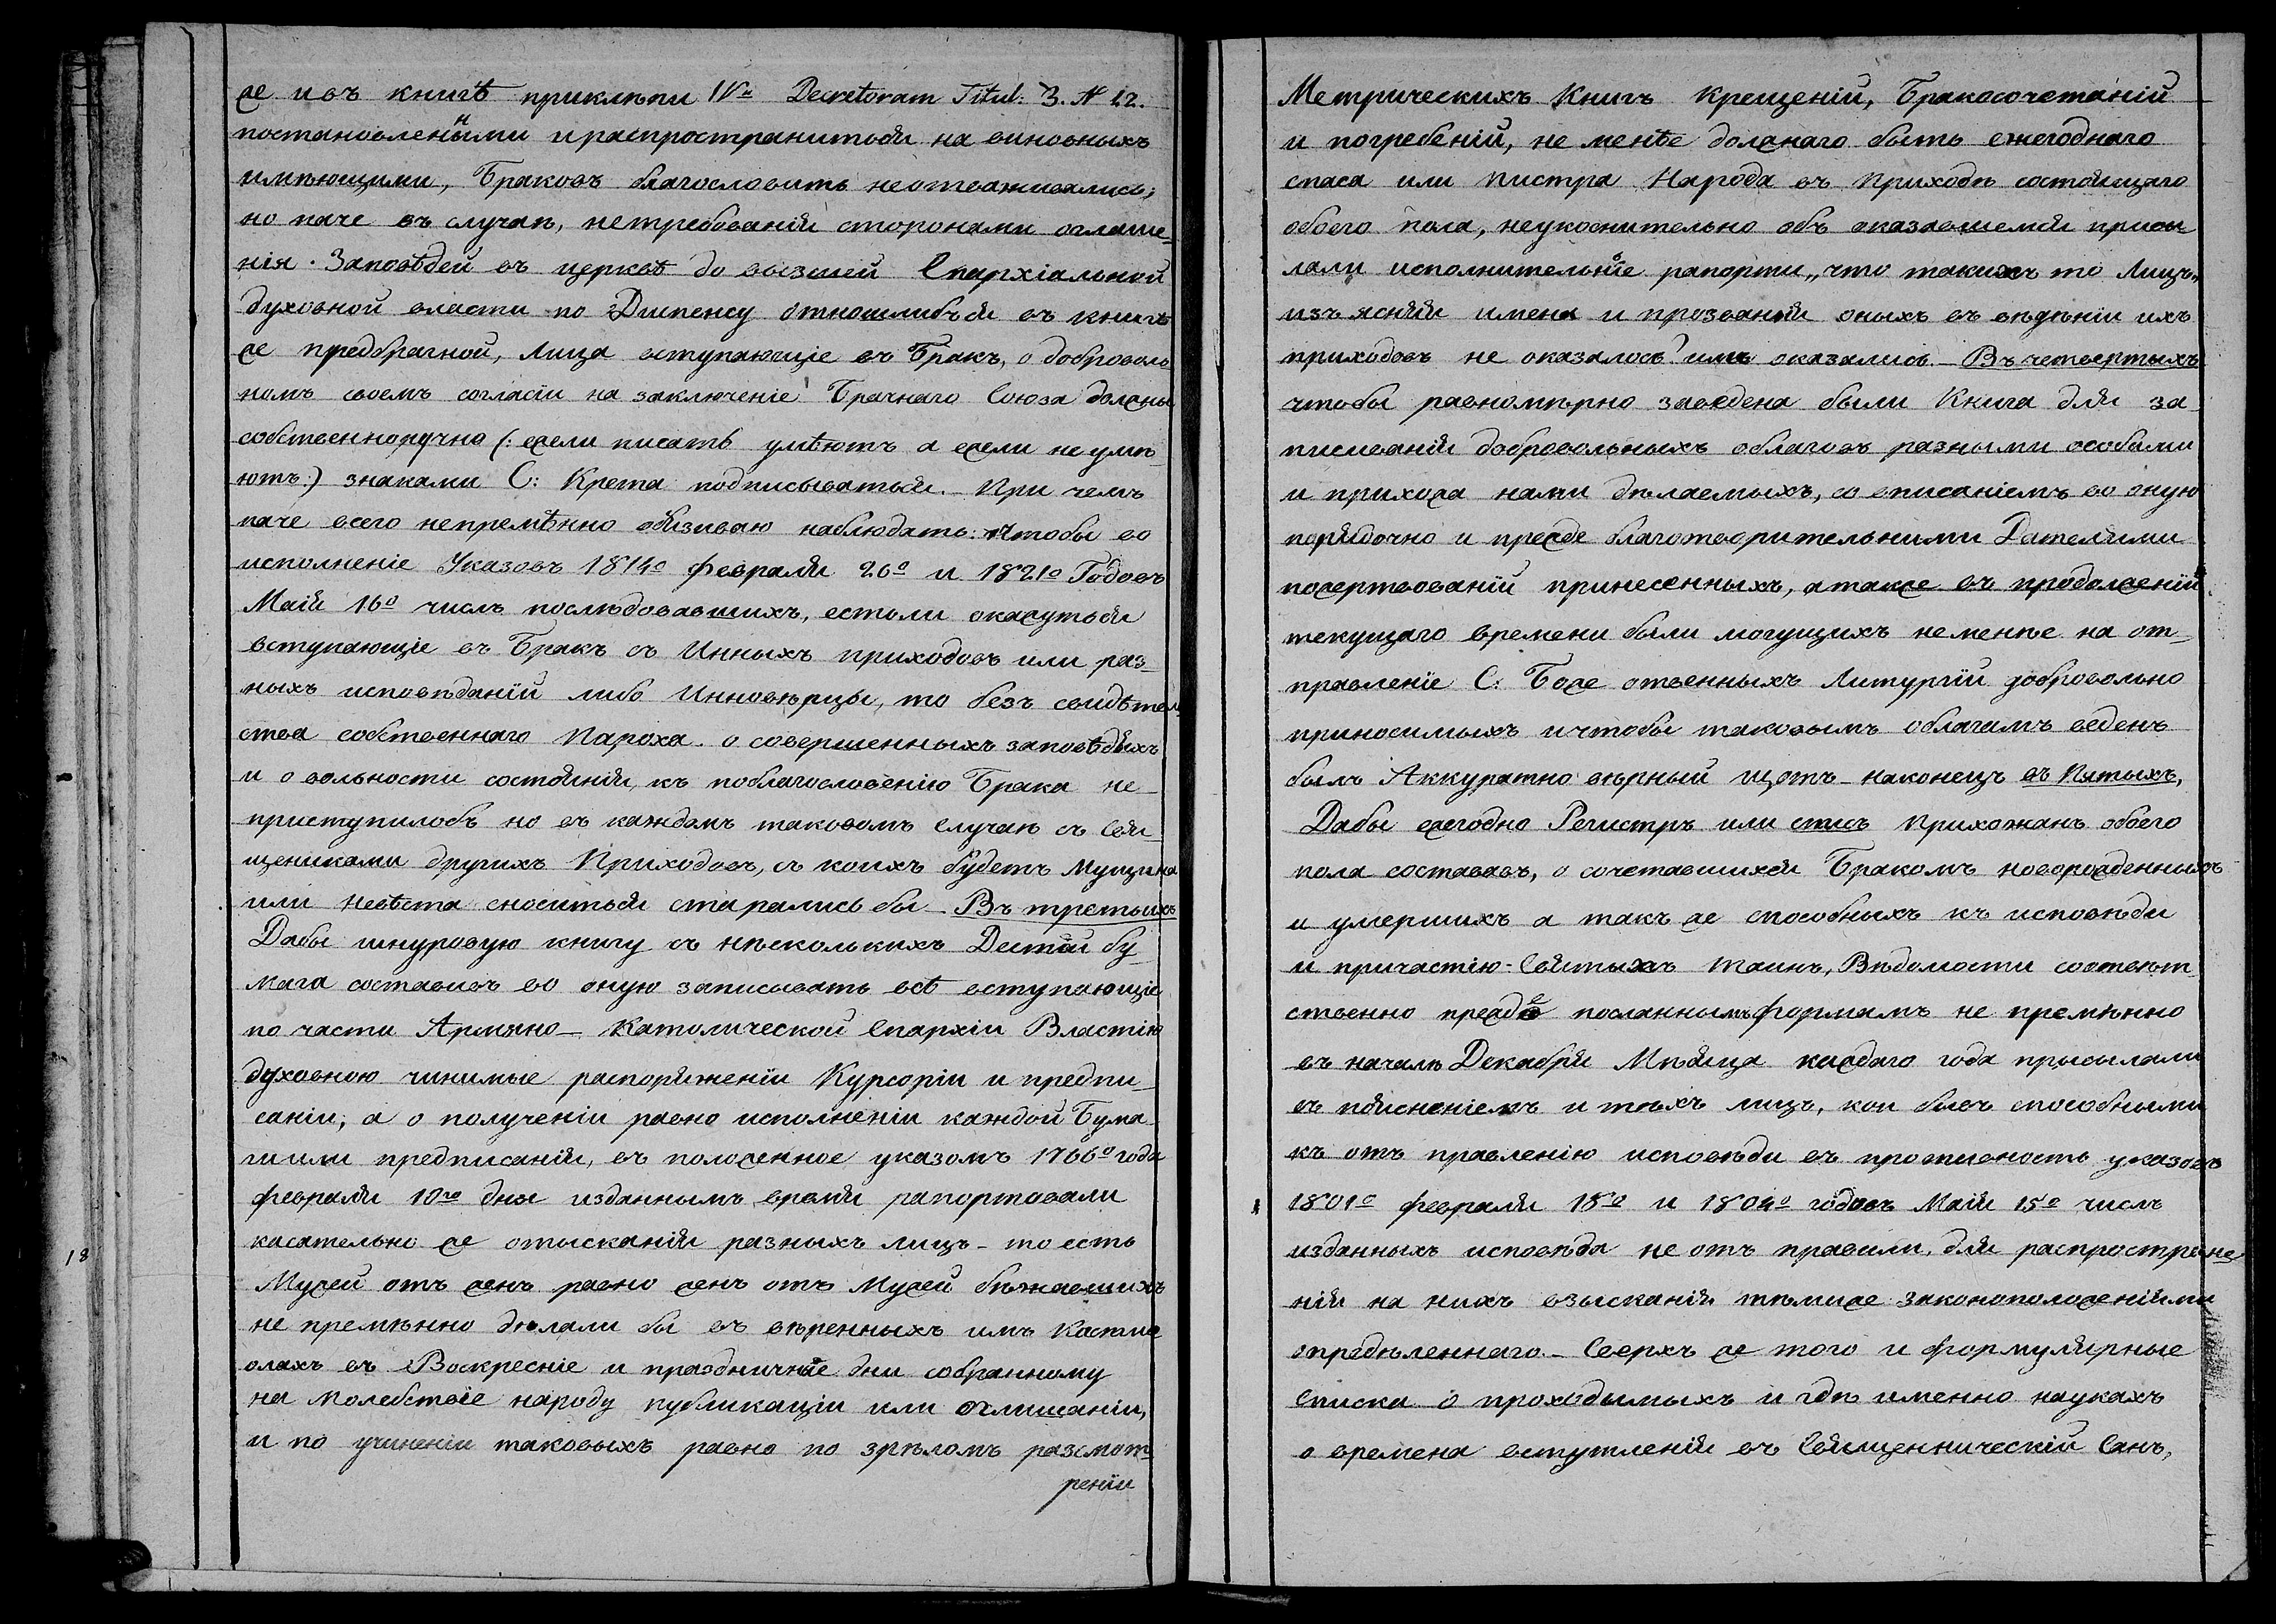 же и въ книгѣ приклѣпи IVа Decretoram Titul: 3. № 22.
постановленными и распространиться на виновныхъ
имѣющими, Браковъ благословить не отваживались;
но паче въ случаѣ, нетребованія сторонами оглаше-
нія Заповѣдей въ церквѣ до высшей Епархіальной
духовной власти по Диспенсу относилибъся въ книгѣ
же предбрачной, Лица вступающіе въ Бракъ, о доброволь
номъ своемъ согласіи на заключеніе Брачнаго Союза должны
собственноручно (: ежели писать умѣютъ а ежели не умѣ-
ютъ:) знаками С: Креста подписываться. При чемъ
паче всего непремѣнно обязиваю наблюдать: чтобы во
исполненіе Указовъ 1814о Февраля 26о и 1821о Годовъ
Маія 16о числъ послѣдовавшихъ, естьли окажуться
вступающіе въ Бракъ съ Инныхъ приходовъ или раз-
ныхъ исповѣданій либо Инновѣрцы, то безъ свидѣтель
ства собственнаго Пароха о совершенныхъ заповѣдяхъ
и о вольности состоянія, къ поблагословенію Брака не-
приступилобъ но въ каждомъ таковомъ Случаѣ съ Свя
щенниками другихъ Приходовъ, съ коихъ будетъ Мущина
или Невѣста сноситься старались бы Въ третьихъ
Дабы шнуровую книгу съ нѣсколькихъ Дестей бу-
мага составивъ во оную записывать всѣ вступающіе
по части Армяно-Католической Епархіи Властію
духовною чинимые распоряженіи Курсоріи и предпи-
саніи, а о полученіи равно исполненіи каждой Бума-
ги или предписанія, въ положенное указомъ 1766о года
февраля 10го дня изданнымъ время рапортовали
касательно же отысканія разныхъ лицъ - то есть
Мужей отъ женъ равно женъ отъ Мужей бѣжавшихъ
не премѣнно дѣлали бы въ ввѣренныхъ имъ Костіо
олахъ въ Воскресніе и праздничніе дни собранному
на молебствіе народу публикаціи или оглишаніи,
и по учиненіи таковыхъ равно по зрѣломъ разсмот-
реніи
18
Метрическихъ Книгъ Крещеній, Бракосочетаній
и погребеній, не менѣе должнаго быть ежегоднаго
списа или Листра Народа въ Приходѣ состоящаго
обоего пола, неукоснительно объ оказавшемся присы
лали исполнительніе рапорти „что такихъ то Лицъ„
изъясняя имена и прозванія оныхъ въ вѣдѣніи ихъ
приходовъ не оказалось? или оказались - Въ четвертыхъ
чтобы равномѣрно заведена были Книга для за
писиванія добровольныхъ облаговъ разными особами
и прихожа нами дѣлаемыхъ, со вписаніемъ во оную
порядочно и прежде благотворительними Дателями
пожертвованій принесенныхъ, а также въ продолженіи
текущаго времени были могущихъ не менѣе на от-
правленіе С: Боже отвенныхъ Литургій добровольно
приносимыхъ и чтобы таковымъ облагамъ веденъ
былъ Аккуратно вѣрный щотъ - наконецъ въ Пятыхъ,
Дабы ежегодно Регистръ или списъ Прихожанъ обоего
пола составивъ, о сочетавшихся Бракомъ новорожденныхъ
и умершихъ а такъ же способныхъ къ исповѣди
и причастію Святыхъ таинъ, Вѣдомости соотвѣт-
ственно прежде посланнымъ формамъ не премѣнно
въ началѣ Декабря Мѣсяца каждаго года присылали
съ пояснéніемъ и тѣхъ лицъ, кои бывъ способными
къ отъ правленію исповѣди въ противность указовъ
1801о февраля 18о и 1804о годовъ Маія 15о числъ
изданныхъ исповѣди не отъ правили, для распростране
нія на нихъ взысканія тѣмиже законоположеніями
опредѣленнаго. Сверхъ же того и формулярные
Списки о проходимыхъ и гдѣ именно наукахъ
о времена вступленія въ Священническій Санъ,